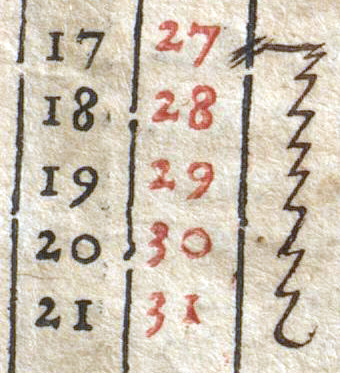 17 27
18 28
19 29
20 30
21 31